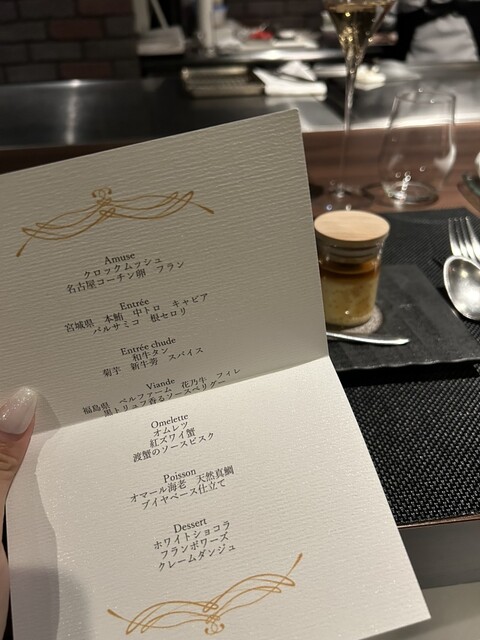 Amuse
クロックムッシュ
名古屋コーチン卵 フラン
Entrée
宮城県 本鮪 中トロ キャビア
バルサミコ 根セロリ
Entrée chude
和牛タン
菊芋 新牛蒡 スパイス
Viande
福島県 ベルファーム 花乃牛 フィレ
黒トリュフ香るソースペリグー
Omelette
オムレツ
紅ズワイ蟹
渡蟹のソースビスク
Poisson
オマール海老 天然真鯛
ブイヤベース仕立て
Dessert
ホワイトショコラ
フランボワーズ
クレームダンジュ